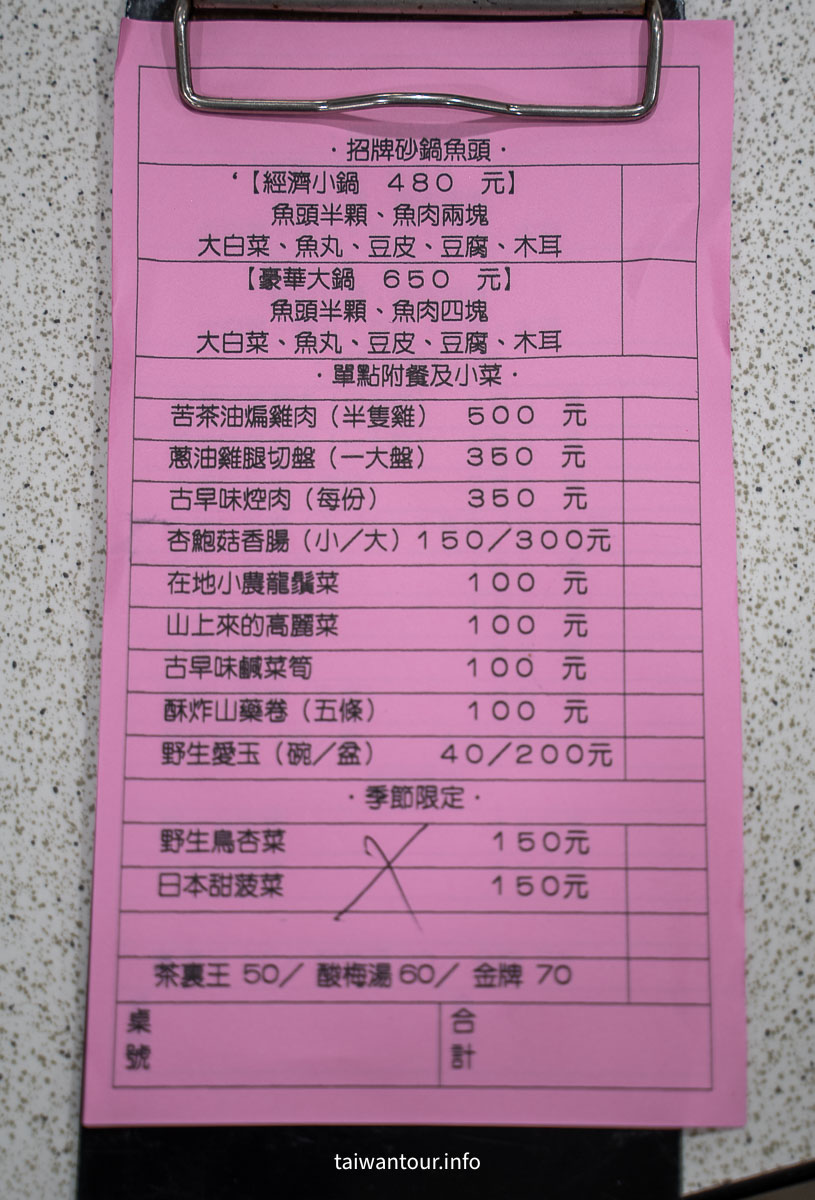 ·招牌砂鍋魚頭·
‘【經濟小鍋 480 元】
魚頭半顆、魚肉兩塊
大白菜、魚丸、豆皮、豆腐、木耳
【豪華大鍋 650 元】
魚頭半顆、魚肉四塊
大白菜、魚丸、豆皮、豆腐、木耳
·單點附餐及小菜·
苦茶油煸雞肉（半隻雞） 500 元
蔥油雞腿切盤（一大盤） 350 元
古早味焢肉（每份） 350 元
杏鮑菇香腸（小／大）150／300元
在地小農龍鬚菜 100 元
山上來的高麗菜 100 元
古早味鹹菜筍 100 元
酥炸山藥卷（五條） 100 元
野生愛玉（碗／盆） 40／200元
·季節限定·
野生鳥杏菜 150元
日本甜菠菜 150元
茶裏王 50／ 酸梅湯 60／ 金牌 70
桌號
合計
taiwantour.info